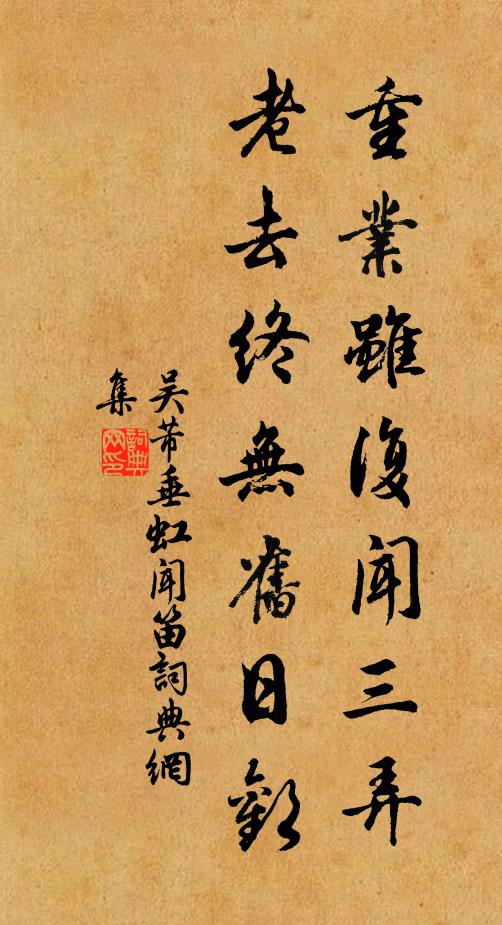 重業雖復聞三弄
老去終無舊日歡
吴芾垂虹聞笛詞典網
集
詞典
网印